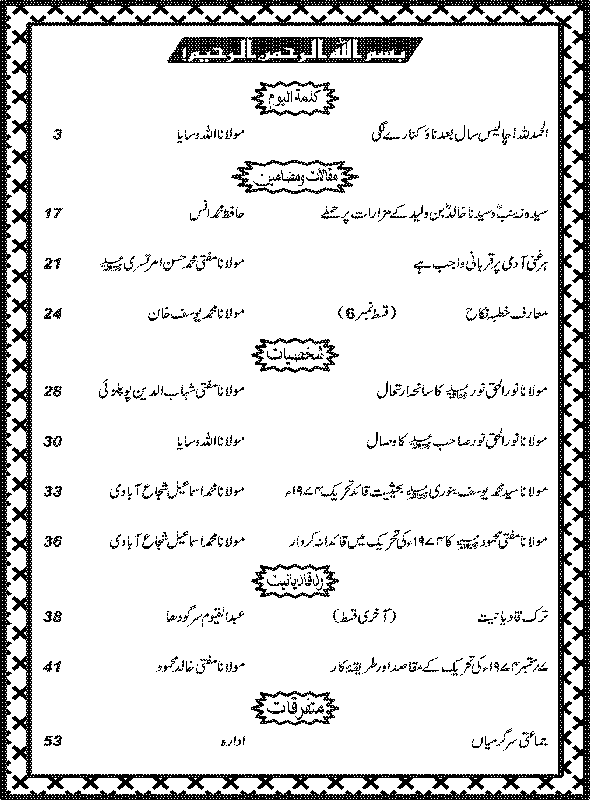 بسم اللہ الرحمن الرحیم
کلمۃ الیوم
الحمدللہ! چالیس سال بعد ناؤ کنارے لگی مولانا اللہ وسایا 3
مقالات ومضامین
سیدہ زینبؓ وسیدنا خالدؓ بن ولید کے مزارات پر حملے حافظ محمد انس 17
ہر غنی آدمی پر قربانی واجب ہے مولانا مفتی محمد حسن امرتسریؒ 21
معارف خطبہ نکاح (قسط نمبر 6) مولانا محمد یوسف خان 24
شخصیات
مولانا نورالحق نورؒ کا سانحہ ارتحال مولانا مفتی شہاب الدین پوپلزئی 28
مولانا نورالحق نور صاحبؒ کا وصال مولانا اللہ وسایا 30
مولانا سید محمد یوسف بنوریؒ بحیثیت قائد تحریک ۱۹۷۴ء مولانا محمد اسماعیل شجاع آبادی 33
مولانا مفتی محمودؒ کا ۱۹۷۴ء کی تحریک میں قائدانہ کردار مولانا محمد اسماعیل شجاع آبادی 36
رد قادیانیت
ترک قادیانیت (آخری قسط) عبدالقیوم سرگودھا 38
۷ ستمبر ۱۹۷۴ء کی تحریک کے مقاصد اور طریقہ کار مولانا مفتی خالد محمود 41
متفرقات
جماعتی سرگرمیاں ادارہ 53